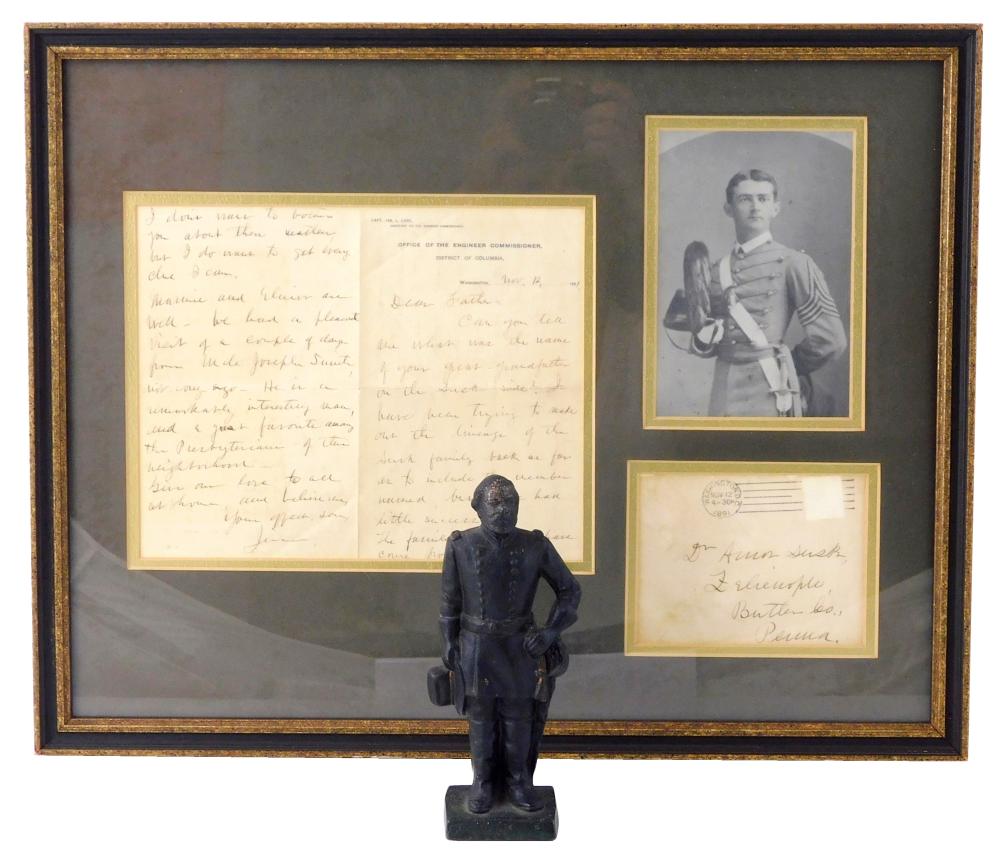 I don't want to bother
you about this matter
but I do want to get every
clue I can.
and are
well - We had a pleasant
visit of a couple of days
from Uncle Joseph
not long ago - He is a
remarkably interesting man,
and a great favorite among
the Presbyterians of this
neighborhood -
Give our love to all
at home and believe me
Your son
OFFICE OF THE ENGINEER COMMISSIONER,
DISTRICT OF COLUMBIA,
WASHINGTON, Nov. 12, 1891
Dear Father,
Can you tell
me what was the name
of your great grandfather
on the Lusk side? I
have been trying to make
out the lineage of the
Lusk family back as far
as to include a member
named had
little success
the family have
come
WASHINGTON, D.C.
NOV 12
4-30P
1891
Dr Amos Lusk,
Zelienople,
Butler Co.,
Penna.